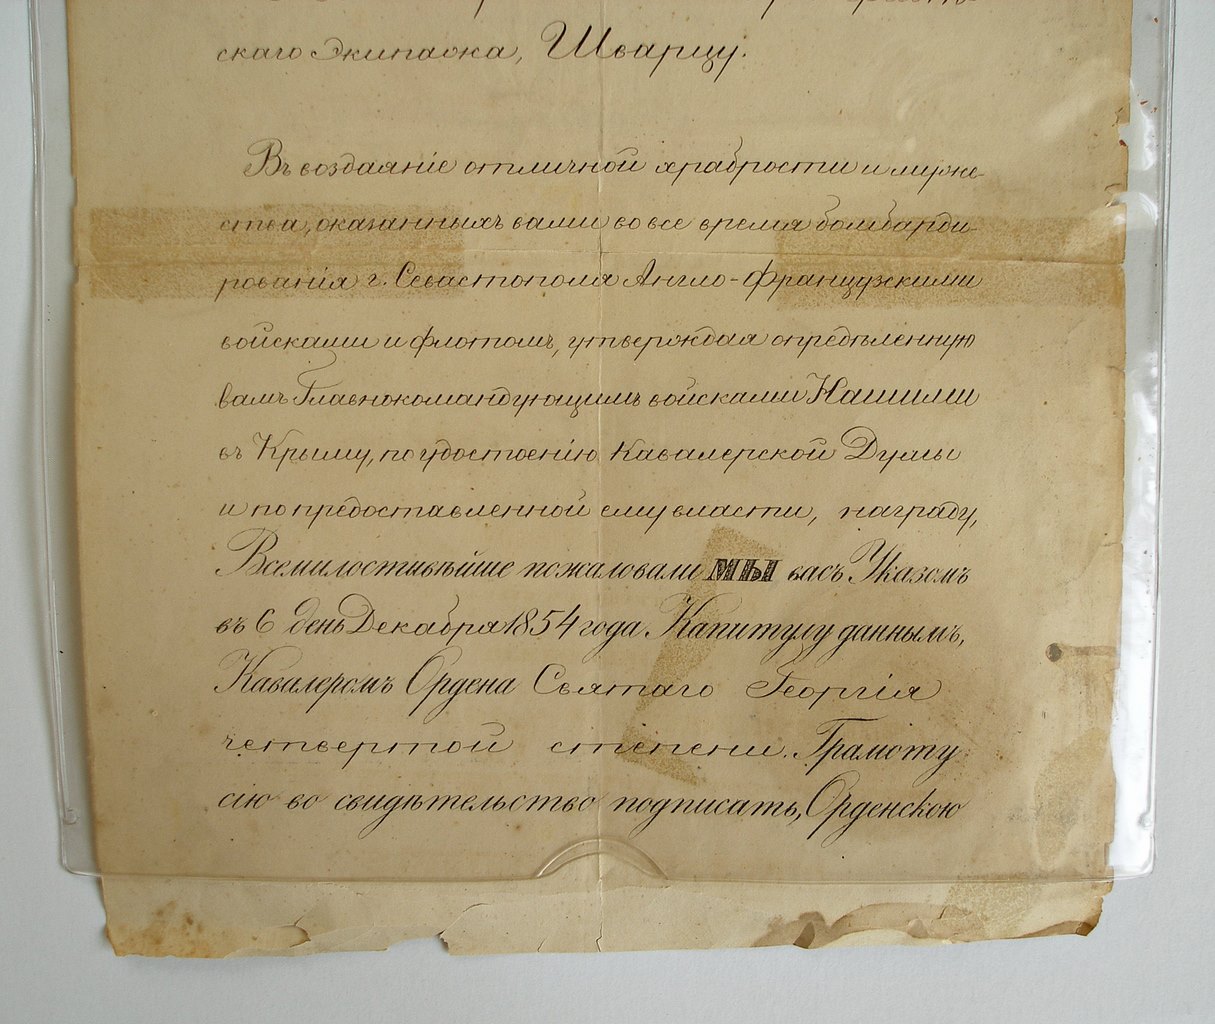 скаго Экипажа, Шварцу.
Въ воздаяніе отличной храбрости и муже-
ства, оказанныхъ вами во все время бомбарди-
рованія г. Севастополя Англо-Французскими
войсками и флотомъ, утверждая опредѣленную
вамъ Главнокомандующимъ войсками Нашими
въ Крыму, по удостоенію Кавалерской Думы
и по предоставленной ему власти, награду,
Всемилостивѣйше пожаловали МЫ васъ Указомъ
въ 6 день Декабря 1854 года Капитулу даннымъ,
Кавалеромъ Ордена Святаго Георгія
четвертой степени. Грамоту
сію во свидѣтельство подписать, Орденскою